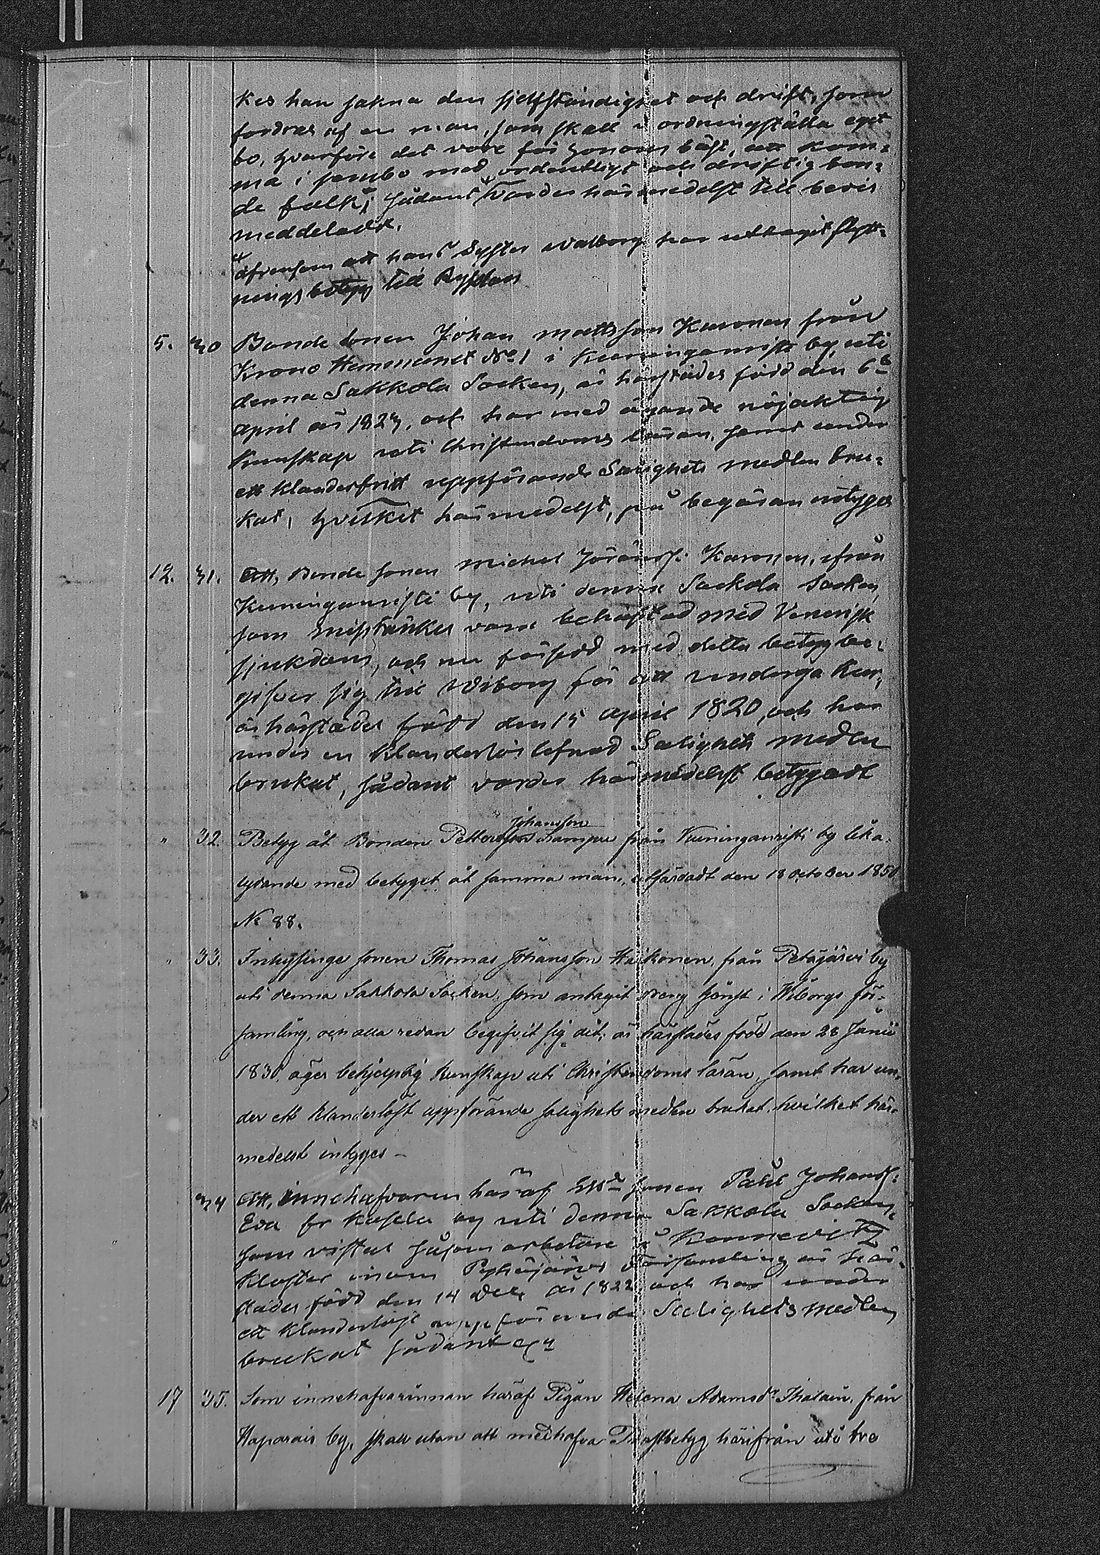 kes han sakna den sjelfständighet och drift, som
fordras af en man, som skall i ordningställa eget
bo, hvarföre det vore för honom bäst, att kom-
ma i sambo med ordentligt och driftig bon-
de folk; sådant varder härmedelst till bevis
meddeladt.
äfvensom att hans Syster Walborg har uttagit flytt-
nings betyg till
5. 30 Bonde sonen Johan Mattsson Karonen från
Krono Hemmanet No 1 i Kuninganristi by, uti
denna Sakkola Socken, är härstädes född den 6te
April år 1823, och har med ägande nöjaktig
kunskap uti Christendoms läran, samt under
ett klanderfritt uppförande Salighets medlen bru-
kat, hvilket härmedelst, på begäran intygas
12. 31. Att, Bonde sonen Michel Göransf: Karonen, ifrån
Kuninganristi by, uti denna Sackola Socken,
som misstänkes vara behäftad med Venerisk
sjukdom, och nu försedd med detta betyg be-
gifver sig till Wiborg för att undergå Kur,
är härstädes född den 15 April 1820, och har
under en klanderlös lefnad Salighets medlen
brukat, sådant varder härmedelst betygadt
" 32. Betyg åt Bonden Petter Johansson från Kuninganristi by lika-
lydande med betyget åt samma man, utfärdadt den 18 October 1850
No 88.
" 33. Inhysinge sonen Thomas Johansson Haikonen, från Petäjärvi by
uti denna Sakkola Socken, som antagit dreng tjenst i Wiborgs för-
samling, och alla redan begifvit sig dit, är härstädes född den 28 Junii
1830, äger behjelplig kunskap uti Christendoms läran, samt har un-
der ett klanderlöst uppförande salighets medlen brukat, hvilket här-
medelst intygas –
34 Att, innehafvaren häraf sonen Påhl Johansf:
Eva fr by uti denna Sakkola Socken,
som vistas såsom arbetare i Konnevits
Kloster inom Pyhäjärvi Församling är här-
städes född den 14 Dec. år 1822 och har under
ett klanderlöst uppförande Salighets medlen
brukat sådant
17 35. Som innehafvarinnan häraf Pigan Helena Adamsdr från
Haparais by, skall utan att medhafva Prestbetyg härifrån uti två